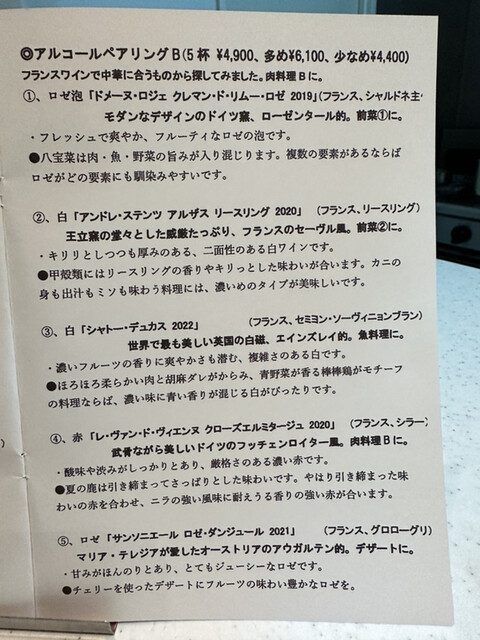 ◎アルコールペアリングB(5杯 ¥4,900、多め¥6,100、少なめ¥4,400)
フランスワインで中華に合うものから探してみました。肉料理Bに。
①、ロゼ泡「ドメーヌ・ロジェ クレマン・ド・リムー・ロゼ 2019」(フランス、シャルドネ主
モダンなデザインのドイツ窯、ローゼンタール的。前菜①に。
・フレッシュで爽やか、フルーティなロゼの泡です。
●八宝菜は肉・魚・野菜の旨みが入り混じります。複数の要素があるならば
ロゼがどの要素にも馴染みやすいです。
②、白「アンドレ・ステンツ アルザス リースリング 2020」 (フランス、リースリング)
王立窯の堂々とした威厳たっぷり、フランスのセーヴル風。前菜②に。
・キリリとしつつも厚みのある、二面性のある白ワインです。
●甲殻類にはリースリングの香りやキリっとした味わいが合います。カニの
身も出汁もミソも味わう料理には、濃いめのタイプが美味しいです。
③、白「シャトー・デュカス 2022」 (フランス、セミヨン・ソーヴィニョンブラン)
世界で最も美しい英国の白磁、エインズレイ的。魚料理に。
・濃いフルーツの香りに爽やかさも潜む、複雑さのある白です。
●ほろほろ柔らかい肉と胡麻ダレがからみ、青野菜が香る棒棒鶏がモチーフ
の料理ならば、濃い味に青い香りが混じる白がぴったりです。
④、赤「レ・ヴァン・ド・ヴィエンヌ クローズエルミタージュ 2020」 (フランス、シラー)
武骨ながら美しいドイツのフッチェンロイター風。肉料理Bに。
・酸味や渋みがしっかりとあり、厳格さのある濃い赤です。
●夏の鹿は引き締まってさっぱりとした味わいです。やはり引き締まった味
わいの赤を合わせ、ニラの強い風味に耐えうる香りの強い赤が合います。
⑤、ロゼ「サンソニエール ロゼ・ダンジュール 2021」 (フランス、グロローグリ)
マリア・テレジアが愛したオーストリアのアウガルテン的。デザートに。
・甘みがほんのりとあり、とてもジューシーなロゼです。
●チェリーを使ったデザートにフルーツの味わい豊かなロゼを。